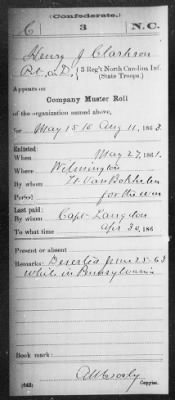 (Confederate.)
C 3 N.C.
Henry J Clarkson
Pvt Co D, 3 Reg't North Carolina Inf.
(State Troops.)
Appears on
Company Muster Roll
of the organization named above,
for May 15 to Aug 11, 1863.
Enlisted:
When May 27, 1861.
Where Wilmington
By whom Lt Van Bokkelen
Period for the war
Last paid:
By whom Capt Langdon
To what time Apr 30, 186
Present or absent
Remarks: Deserted June 25-63
while in Pennsylvania
Book mark:
(642)
Copyist.